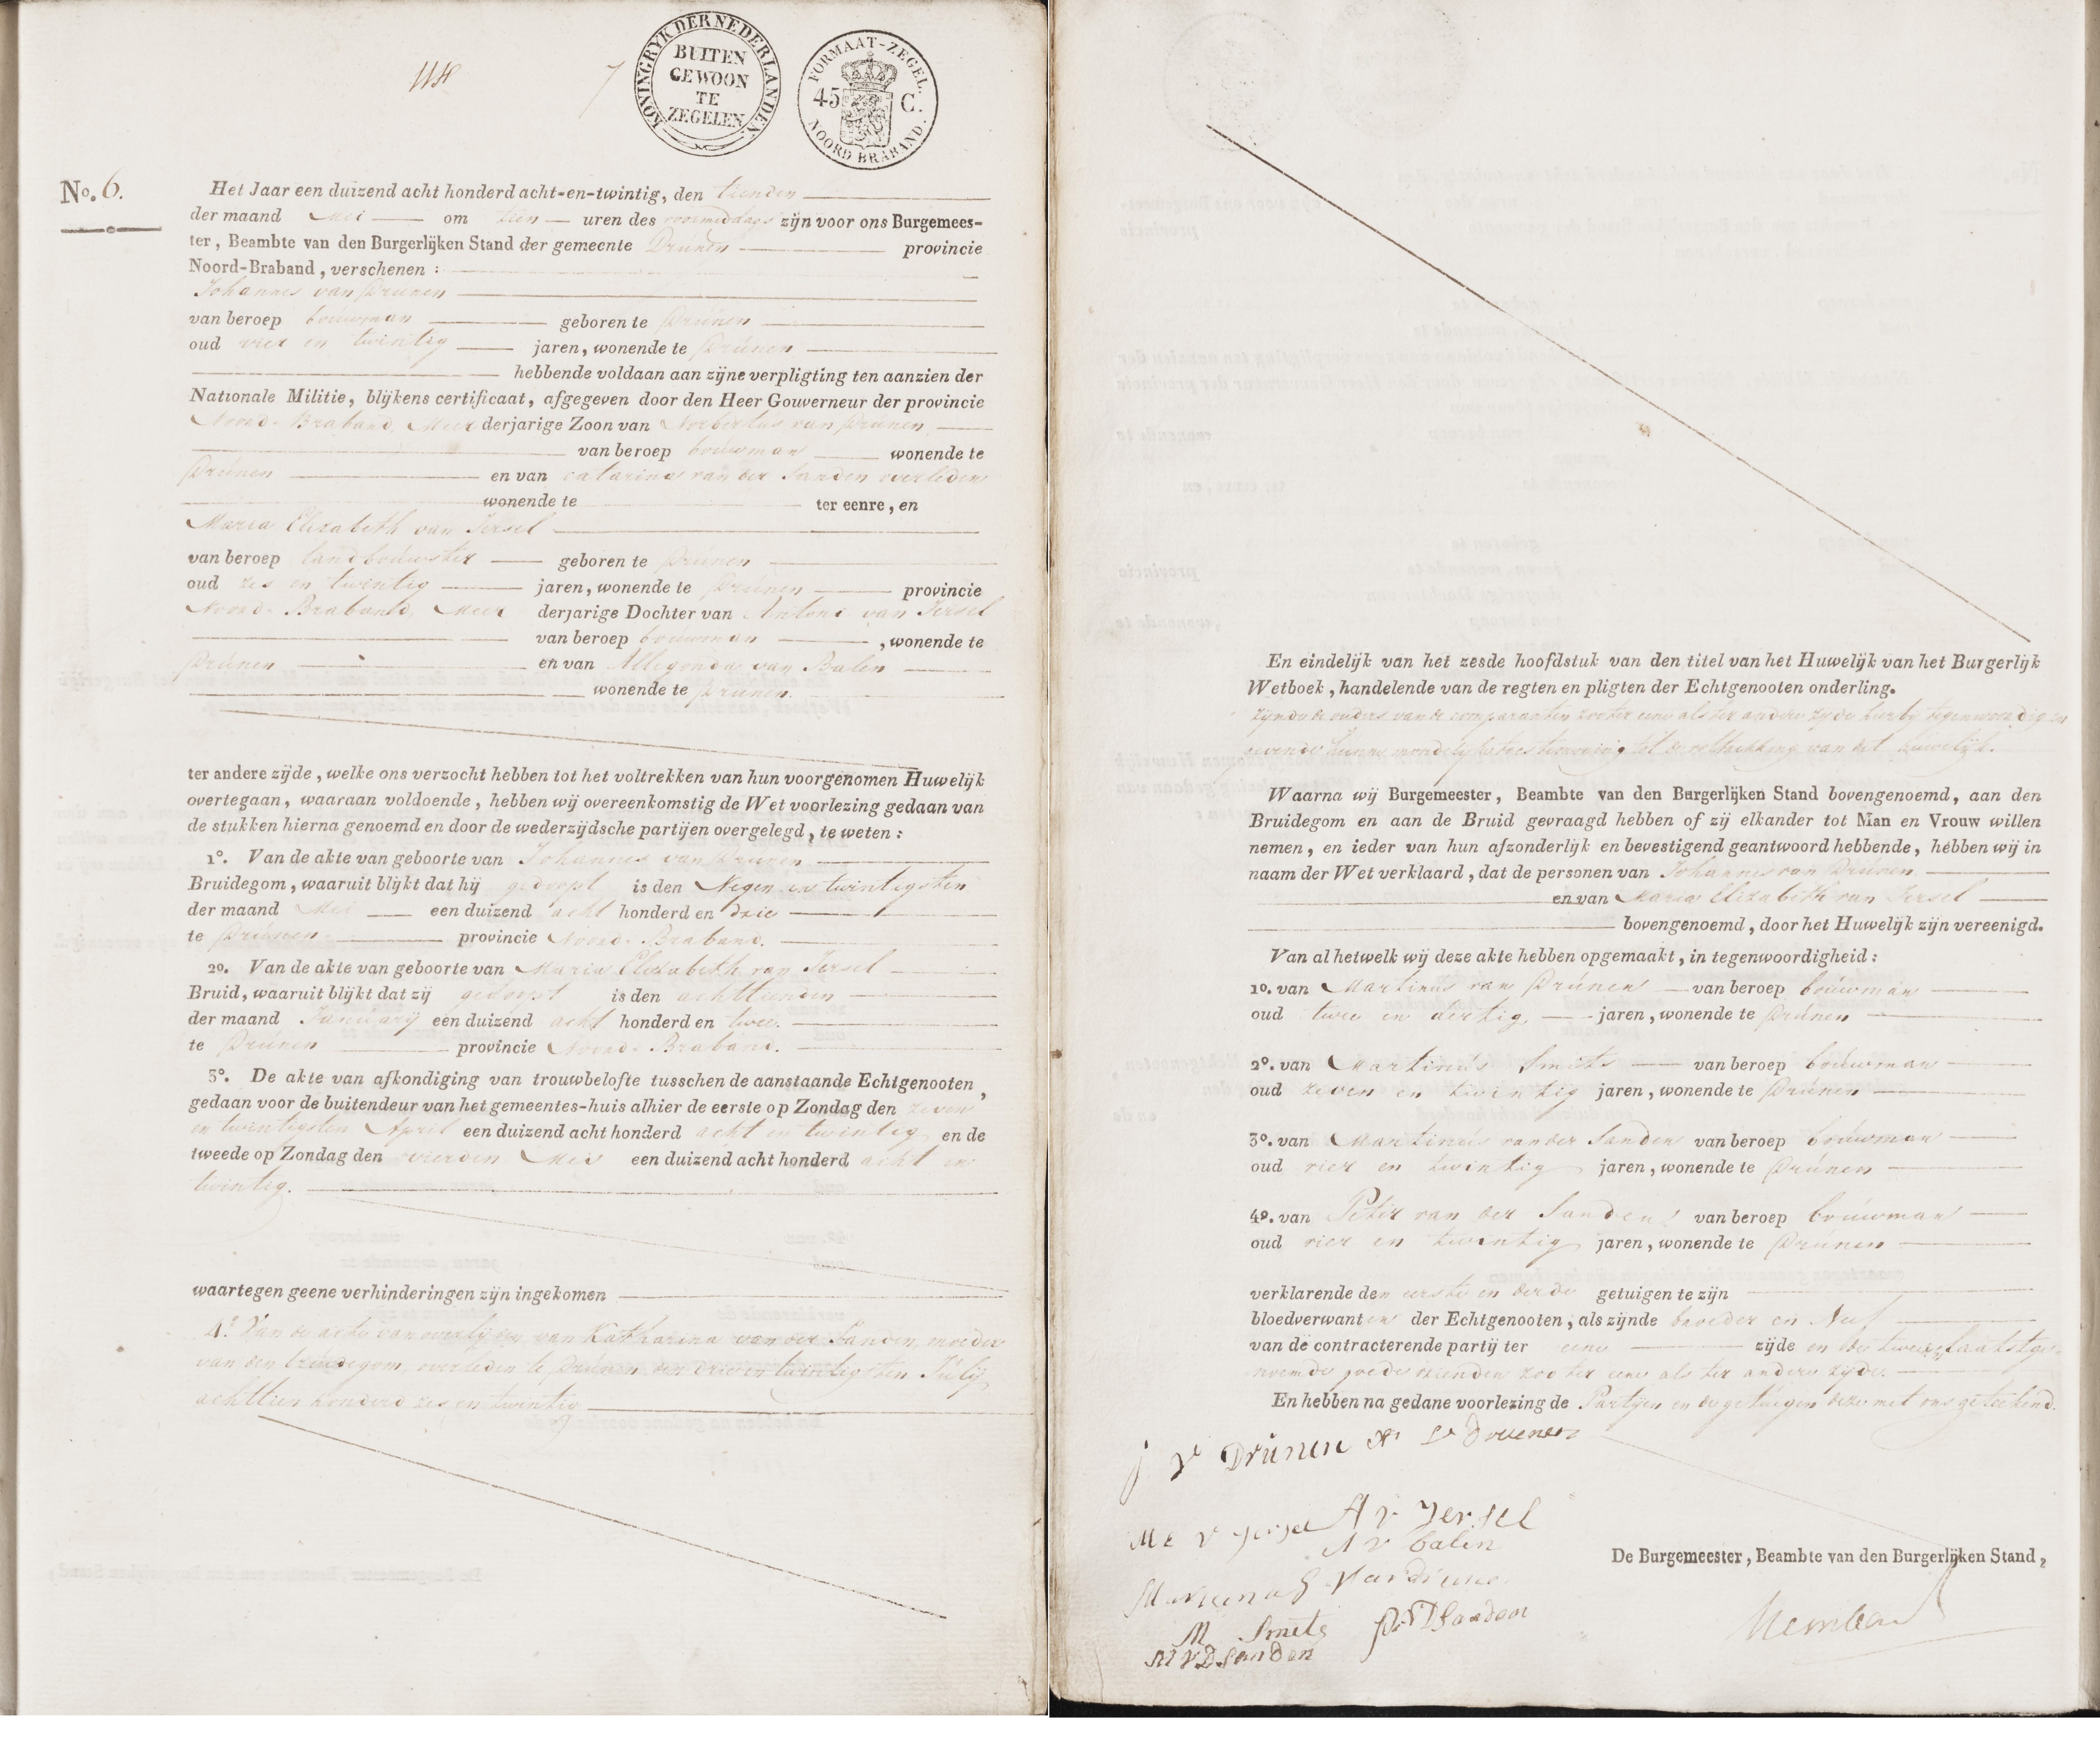 KONINGRYK DER NEDERLANDEN
BUITEN
GEWOON
TE
ZEGELEN
FORMAAT-ZEGEL.
45 C.
NOORD BRABAND.
No. 6.
Het Jaar een duizend acht honderd acht-en-twintig, den tienden
der maand Mei om tien uren des voormiddags zijn voor ons Burgemees-
ter, Beambte van den Burgerlijken Stand der gemeente Drúnen provincie
Noord-Braband, verschenen :
Johannes van Drunen
van beroep bouwman geboren te Drúnen
oud vier en twintig jaren, wonende te Drúnen
hebbende voldaan aan zijne verpligting ten aanzien der
Nationale Militie, blijkens certificaat, afgegeven door den Heer Gouverneur der provincie
Noord-Braband, Meer derjarige Zoon van Norbertus van Drúnen
van beroep bouwman wonende te
Drúnen en van catarina van der Sanden overleden
wonende te ter eenre, en
Maria Elizabeth van Iersel
van beroep landbouwster geboren te Drúnen
oud zes en twintig jaren, wonende te Drúnen provincie
Noord-Braband, Meer derjarige Dochter van Antoni van Iersel
van beroep bouwman , wonende te
Drúnen en van Allegonda van Balen
wonende te Drúnen.
ter andere zijde, welke ons verzocht hebben tot het voltrekken van hun voorgenomen Huwelijk
overtegaan, waaraan voldoende, hebben wij overeenkomstig de Wet voorlezing gedaan van
de stukken hierna genoemd en door de wederzijdsche partijen overgelegd, te weten :
1°. Van de akte van geboorte van Johannes van Drúnen
Bruidegom, waaruit blijkt dat hij gedoopt is den Negen en twintigsten
der maand Mei een duizend acht honderd en drie
te Drúnen provincie Noord-Braband.
2o. Van de akte van geboorte van Maria Elizabeth van Iersel
Bruid, waaruit blijkt dat zij gedoopt is den achttienden
der maand Januarij een duizend acht honderd en twee.
te Drúnen provincie Noord-Braband.
3°. De akte van afkondiging van trouwbelofte tusschen de aanstaande Echtgenooten,
gedaan voor de buitendeur van het gemeentes-huis alhier de eerste op Zondag den zeven
en twintigsten April een duizend acht honderd acht en twintig en de
tweede op Zondag den vierden Mei een duizend acht honderd acht en
twintig.
waartegen geene verhinderingen zijn ingekomen
4° Van de acte van overlijden van Katharina van der Sanden, moeder
van den bruidegom, overleden te Drunen den drie en twintigsten Júlij
achttien honderd zes en twintig
En eindelijk van het zesde hoofdstuk van den titel van het Huwelijk van het Burgerlijk
Wetboek, handelende van de regten en pligten der Echtgenooten onderling.
zijnde de ouders van de comparanten zoo ter eene als ter andere zijde hierbij tegenwoordig en
gevende hunne mondelijke toestemming tot de voltrekking van dit huwelijk.
Waarna wij Burgemeester, Beambte van den Burgerlijken Stand bovengenoemd, aan den
Bruidegom en aan de Bruid gevraagd hebben of zij elkander tot Man en Vrouw willen
nemen, en ieder van hun afzonderlijk en bevestigend geantwoord hebbende, hebben wij in
naam der Wet verklaard, dat de personen van Johannes van Drúnen
en van Maria Elizabeth van Iersel
bovengenoemd, door het Huwelijk zijn vereenigd.
Van al hetwelk wij deze akte hebben opgemaakt, in tegenwoordigheid :
1o. van Martinus van Drúnen van beroep bouwman
oud twee en dertig jaren, wonende te Drúnen
2°. van Martinús Smits van beroep bouwman
oud zeven en twintig jaren, wonende te Drúnen
3°. van Martinús van der Sanden van beroep bouwman
oud vier en twintig jaren, wonende te Drúnen
4°. van Peter van der Sanden van beroep bouwman
oud vier en twintig jaren, wonende te Drúnen
verklarende den eerste en derde getuigen te zijn
bloedverwanten der Echtgenooten, als zijnde broeder en Neef
van de contracterende partij ter eene zijde en de twee laatstge-
noemde goede vrienden zoo ter eene als ter andere zijde.
En hebben na gedane voorlezing de Partijen en de getuigen deze met ons geteekend.
J v Drúnen
M E v Iersel A v Iersel
A v balen
M Smits P v D Sanden
M v D Sanden
De Burgemeester, Beambte van den Burgerlijken Stand,